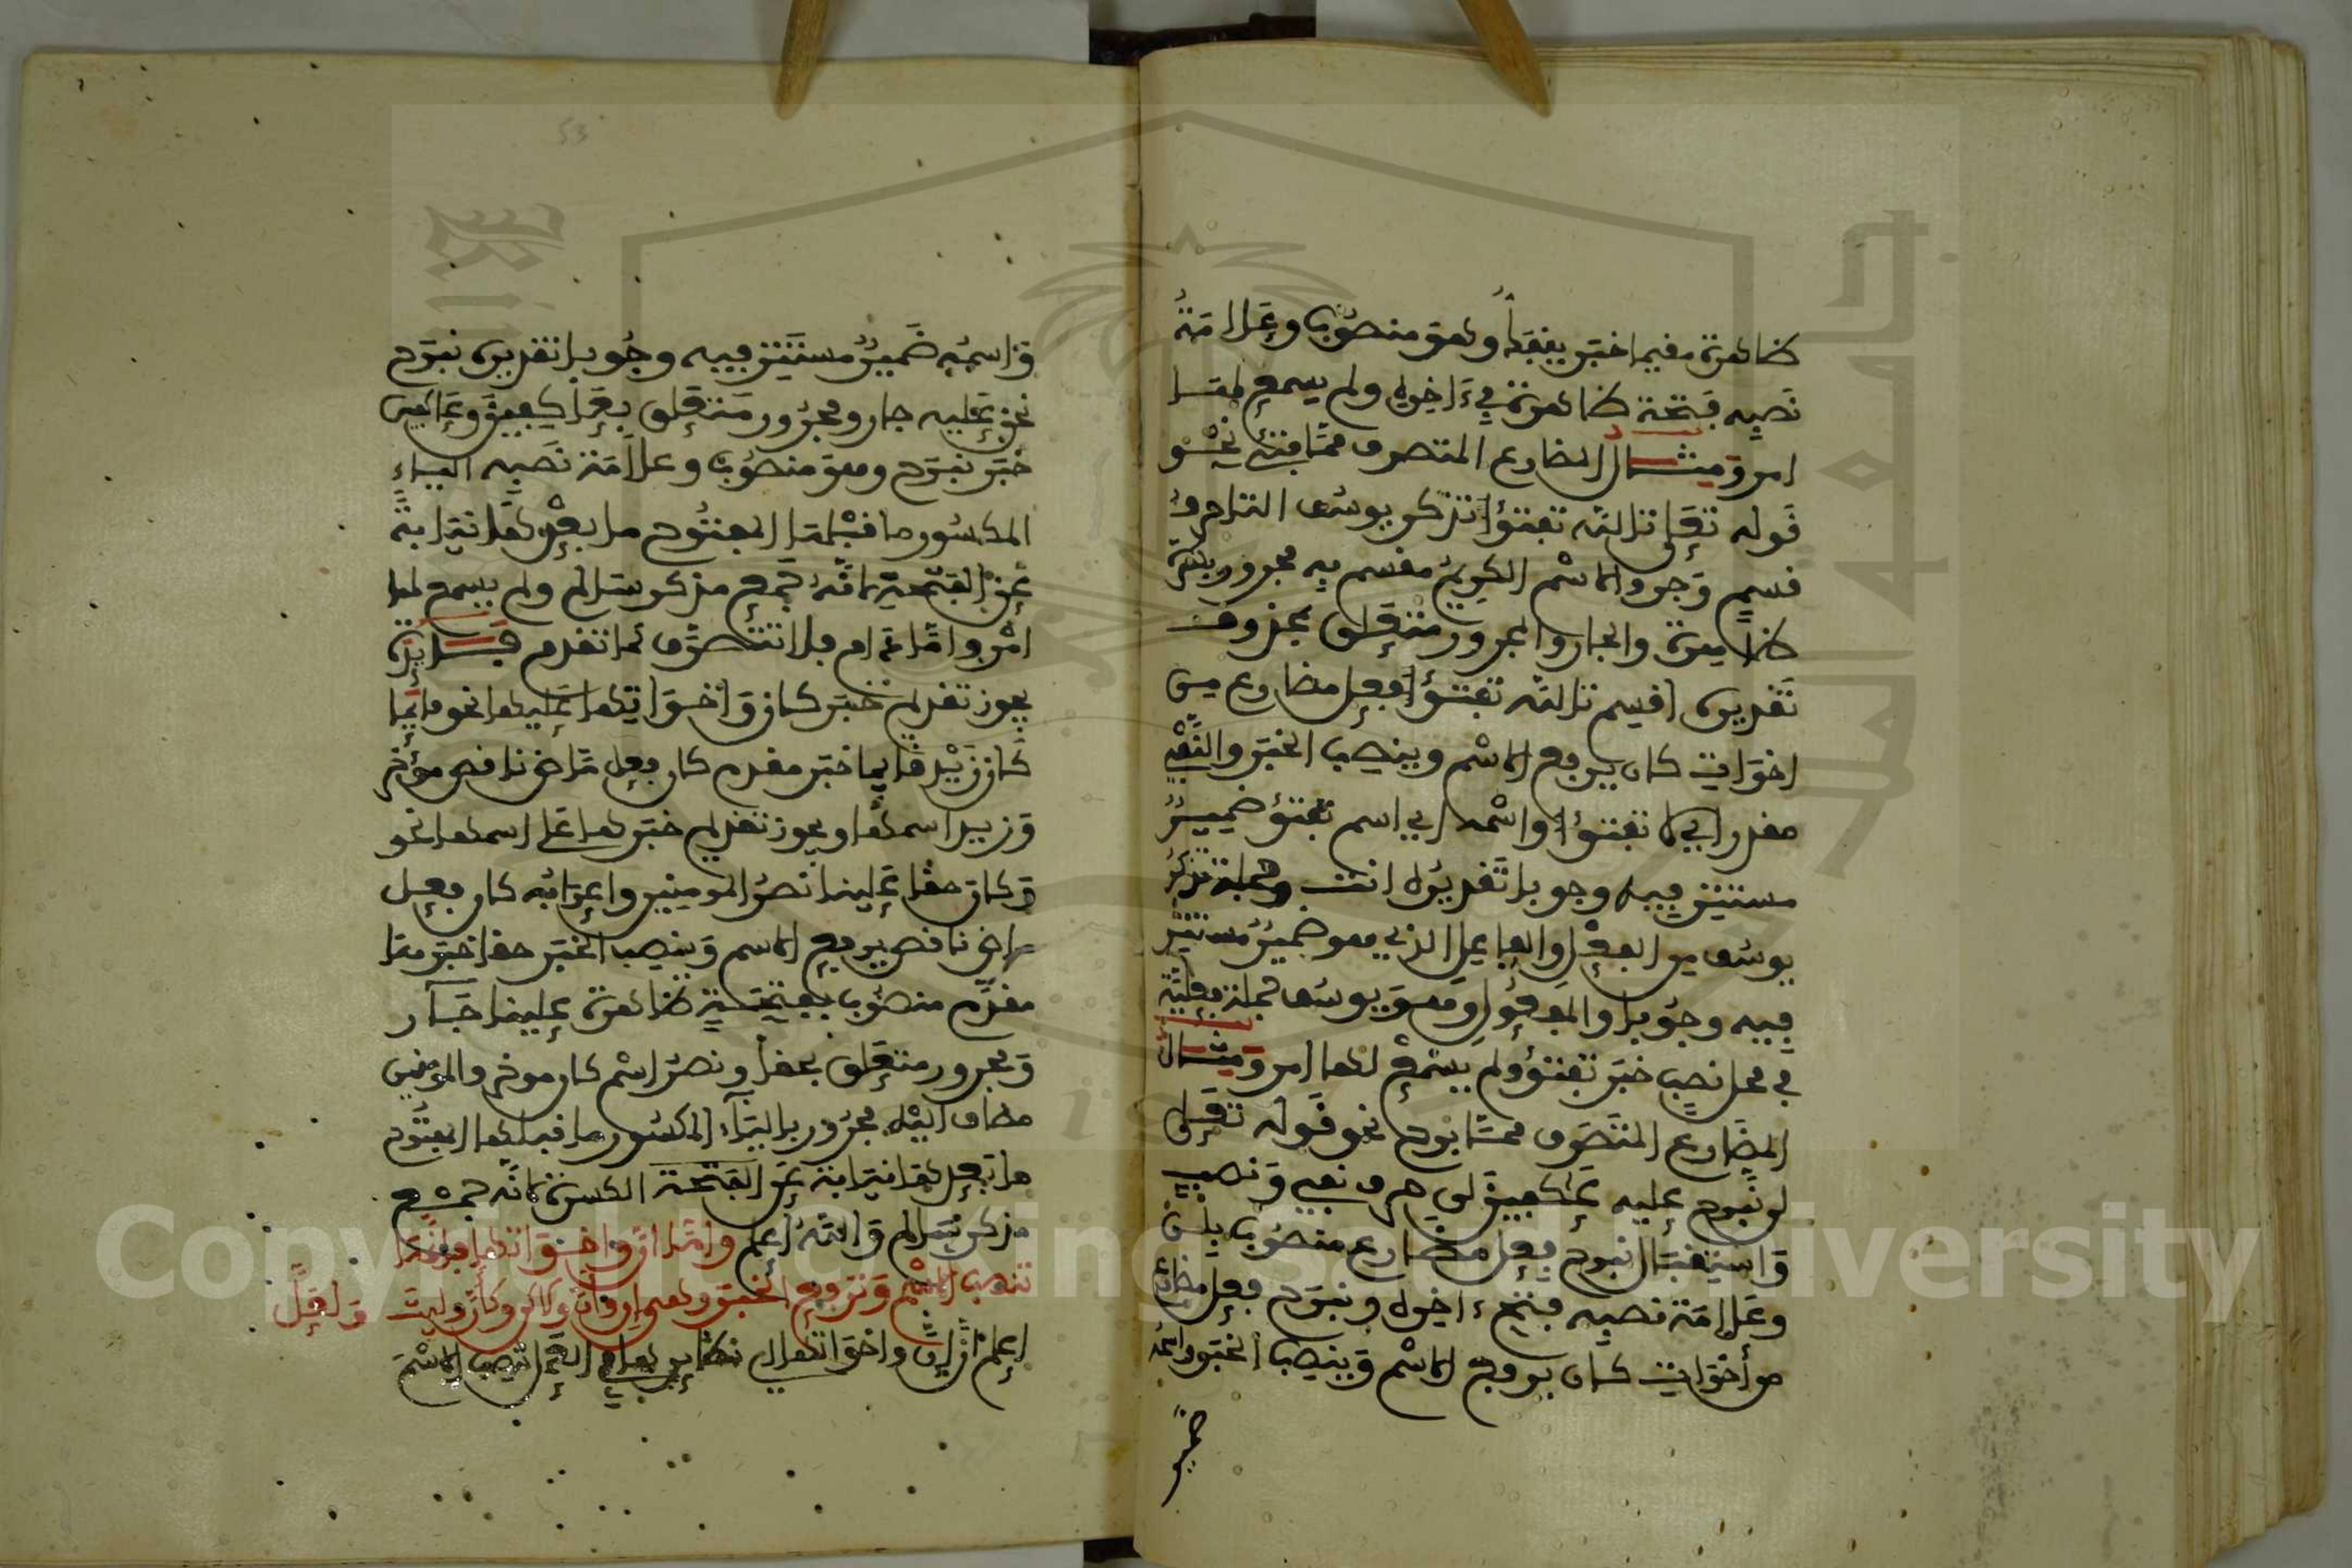 ظاهرة مقيما خبر ينفك وهو منصوب وعلامة
نصبه فتحة ظاهرة في ءاخره ولم يسمع لها
امر ومثال المضارع المتصرف من فتئ نحو
قوله تعلى تالله تفتؤا تذكر يوسف التا حرف
قسم وجر والاسم الكريم مقسم به مجرور بكسرة
ظاهرة والجار والمجرور متعلق بمحذوف
تقديره اقسم تالله تفتؤا فعل مضارع من
اخوات كان يرفع الاسم وينصب الخبر والنفي
مقدر اي لا تفتؤا واسمه اي اسم تفتؤ ضمير
مستتر فيه وجوبا تقديره انت وجملة تذكر
يوسف من الفعل والفاعل الذي هو ضمير مستتر
فيه وجوبا والمفعول وهو يوسف جملة فعلية
في محل نصب خبر تفتؤ ولم يسمع لها امر ومثال
المضارع المتصرف من برح نحو قوله تعلى
لن نبرح عليه عكفين لن حرف نفي ونصب
واستقبال نبرح فعل مضارع منصوب بلن
وعلامة نصبه فتح ءاخره ونبرح فعل مضارع
من أخوات كان يرفع الاسم وينصب الخبر واسمه
ضمير
53
واسمه ضمير مستتر فيه وجوبا تقديره نبرح
نحن عليه جار ومجرور متعلق بعاكفين وعاكفين
خبر نبرح وهو منصوب وعلامة نصبه الياء
المكسور ما قبلها المفتوح ما بعدها نيابة
عن الفتحة لانه جمع مذكر سالم ولم يسمع لها
امر واما دام فلا تتصرف كما تقدم فائدة
يجوز تقديم خبر كان واخواتها عليها نحو قايما
كان زيد قايما خبر مقدم كان فعل ماض ناقص مؤخر
وزيد اسمها ويجوز تقديم خبرها على اسمها نحو
وكان حقا علينا نصر المومنين واعرابه كان فعل
ماض ناقص يرفع الاسم وينصب الخبر حقا خبرها
مقدم منصوب بفتحة ظاهرة علينا جار
ومجرور متعلق بحقا ونصر اسم كان موخر والمومنين
مضاف اليه مجرور بالياء المكسور ما قبلها المفتوح
ما بعدها نيابة عن الفتحة الكسرة لانه جمع
مذكر سالم والله أعلم واما ان واخواتها فانها
تنصب الاسم وترفع الخبر وهي ان وان ولاكن وكان وليت ولعل
اعلم ان ان واخواتها العمل تنصب الاسم